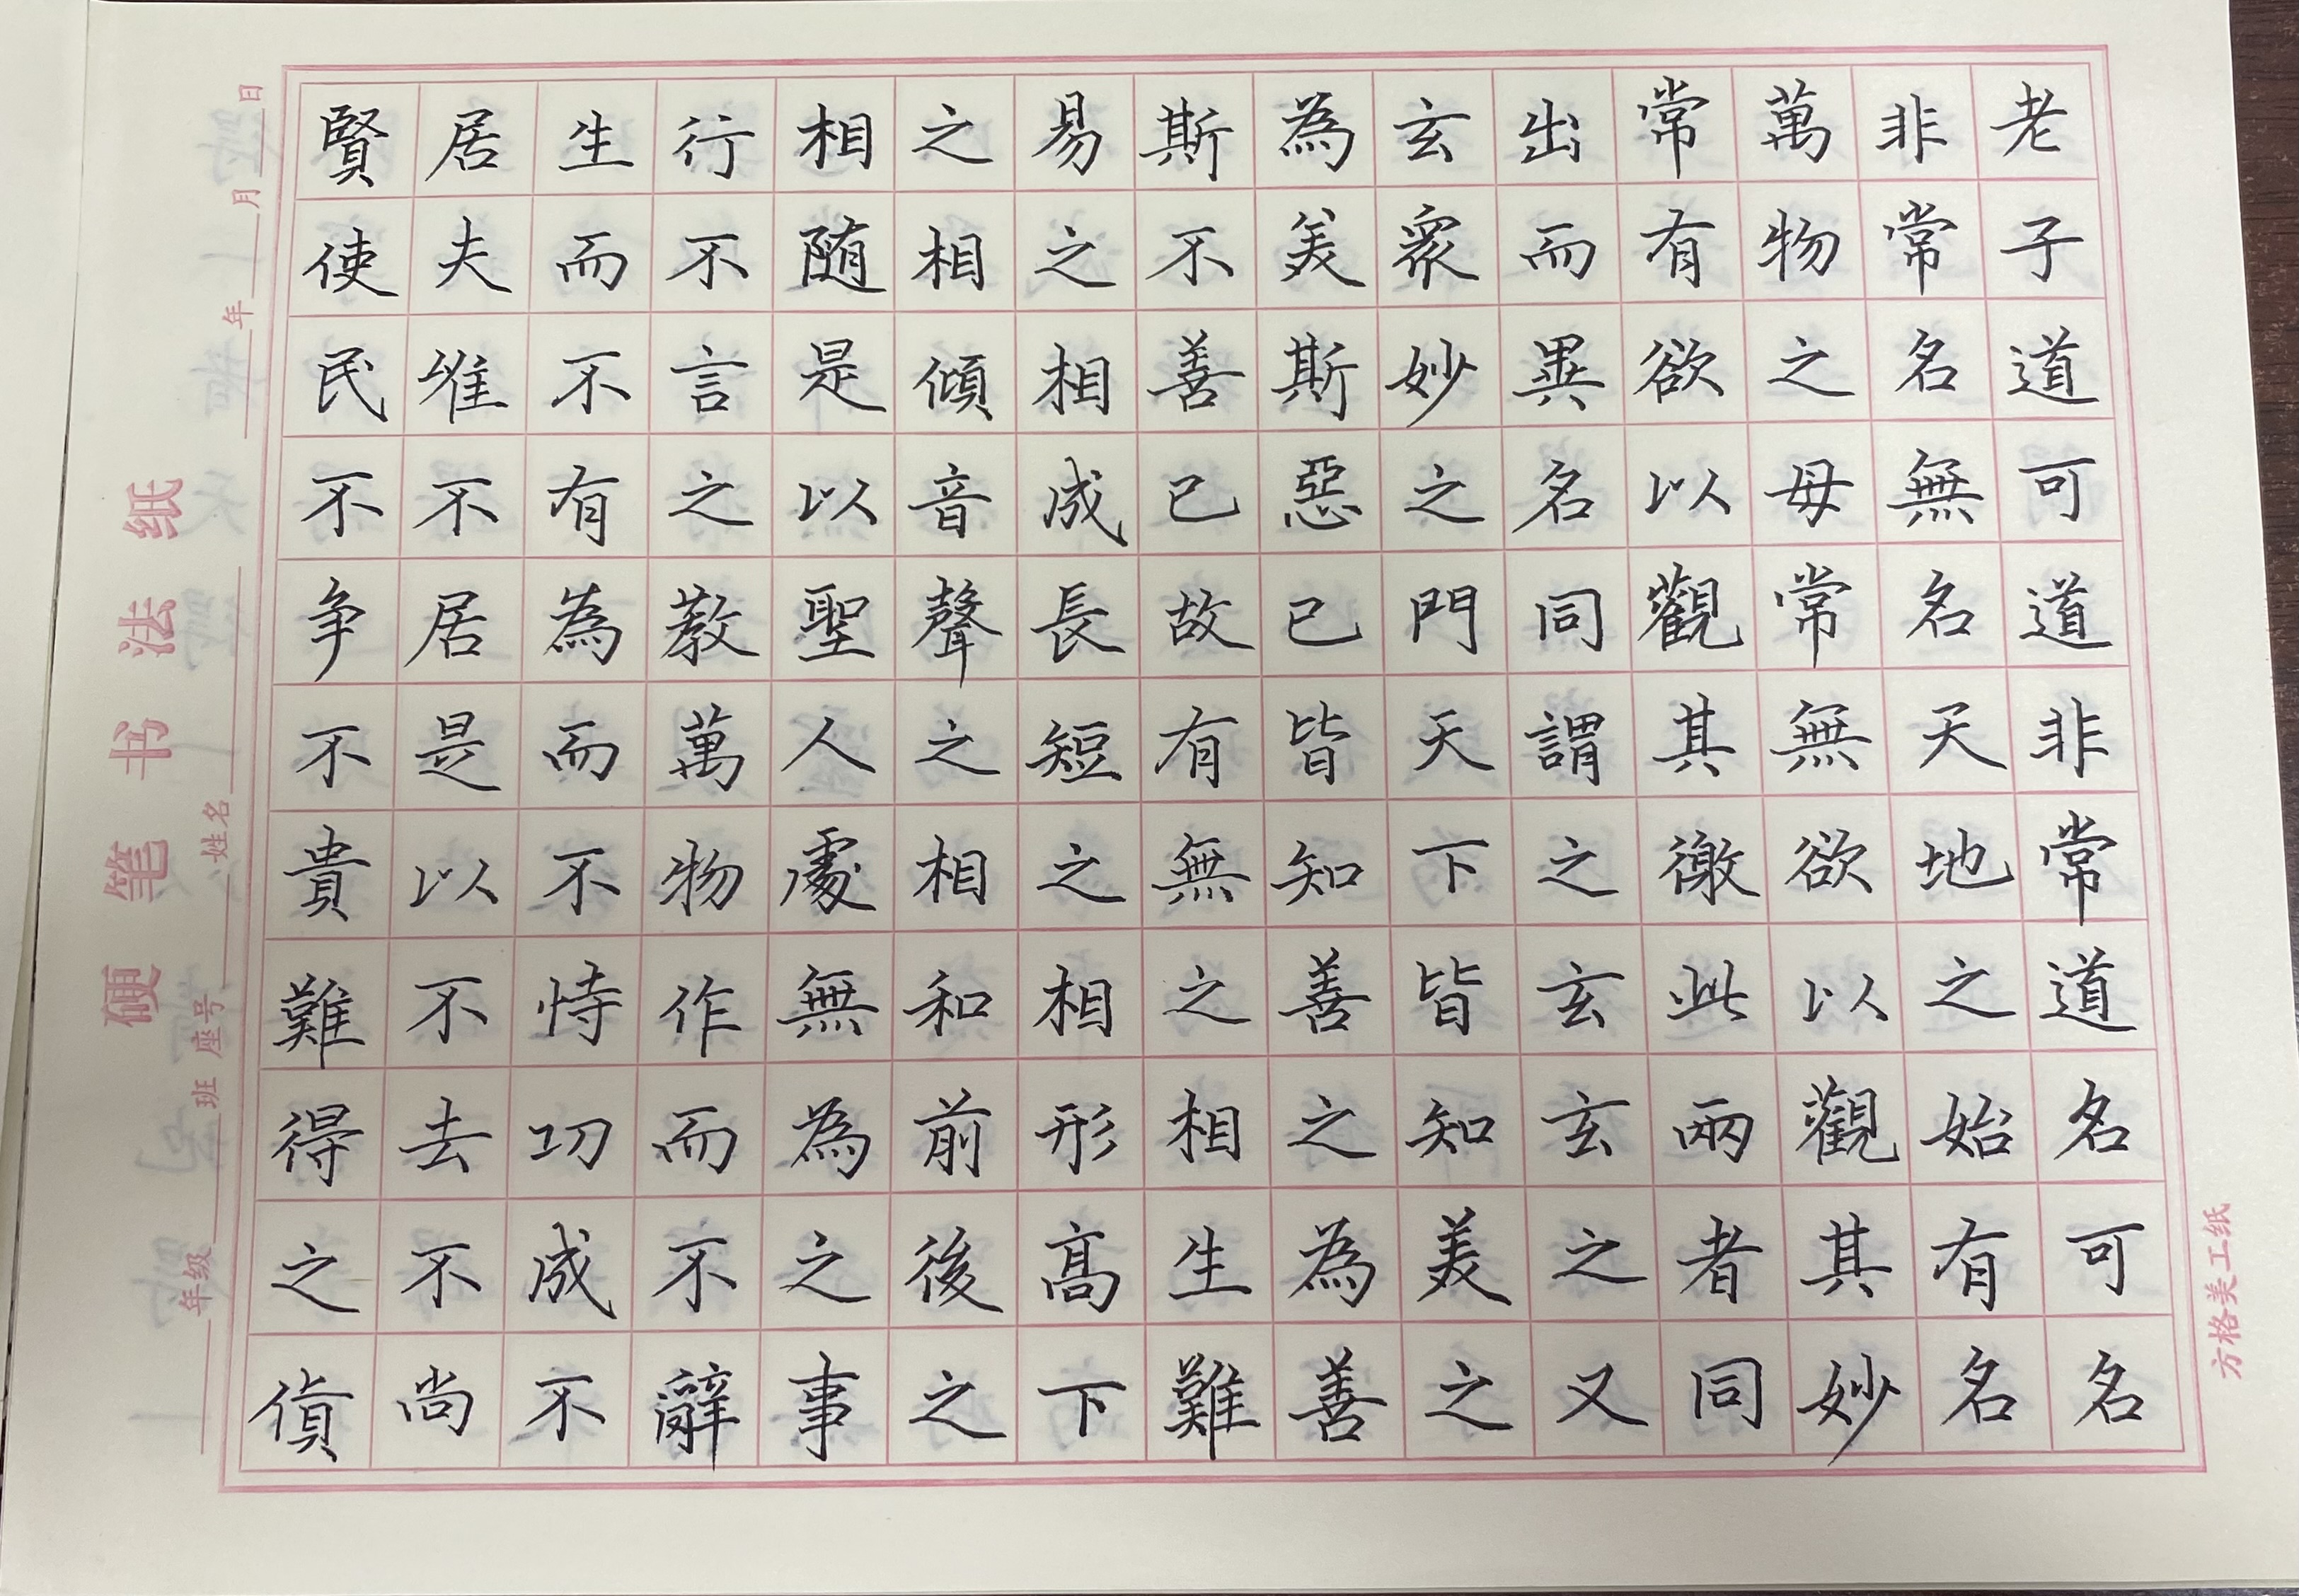 老子道可道非常道名可名
非常名無名天地之始有名
萬物之母常無欲以觀其妙
常有欲以觀其徼此兩者同
出而異名同謂之玄玄之又
玄衆妙之門天下皆知美之
為美斯惡已皆知善之為善
斯不善已故有無之相生難
易之相成長短之相形高下
之相傾音聲之相和前後之
相随是以聖人處無為之事
行不言之教萬物作而不辭
生而不有為而不恃功成不
居夫唯不居是以不去不尚
賢使民不争不貴難得之貨
硬笔书法纸
年级 班 座号 姓名 年 月 日
方格美工纸